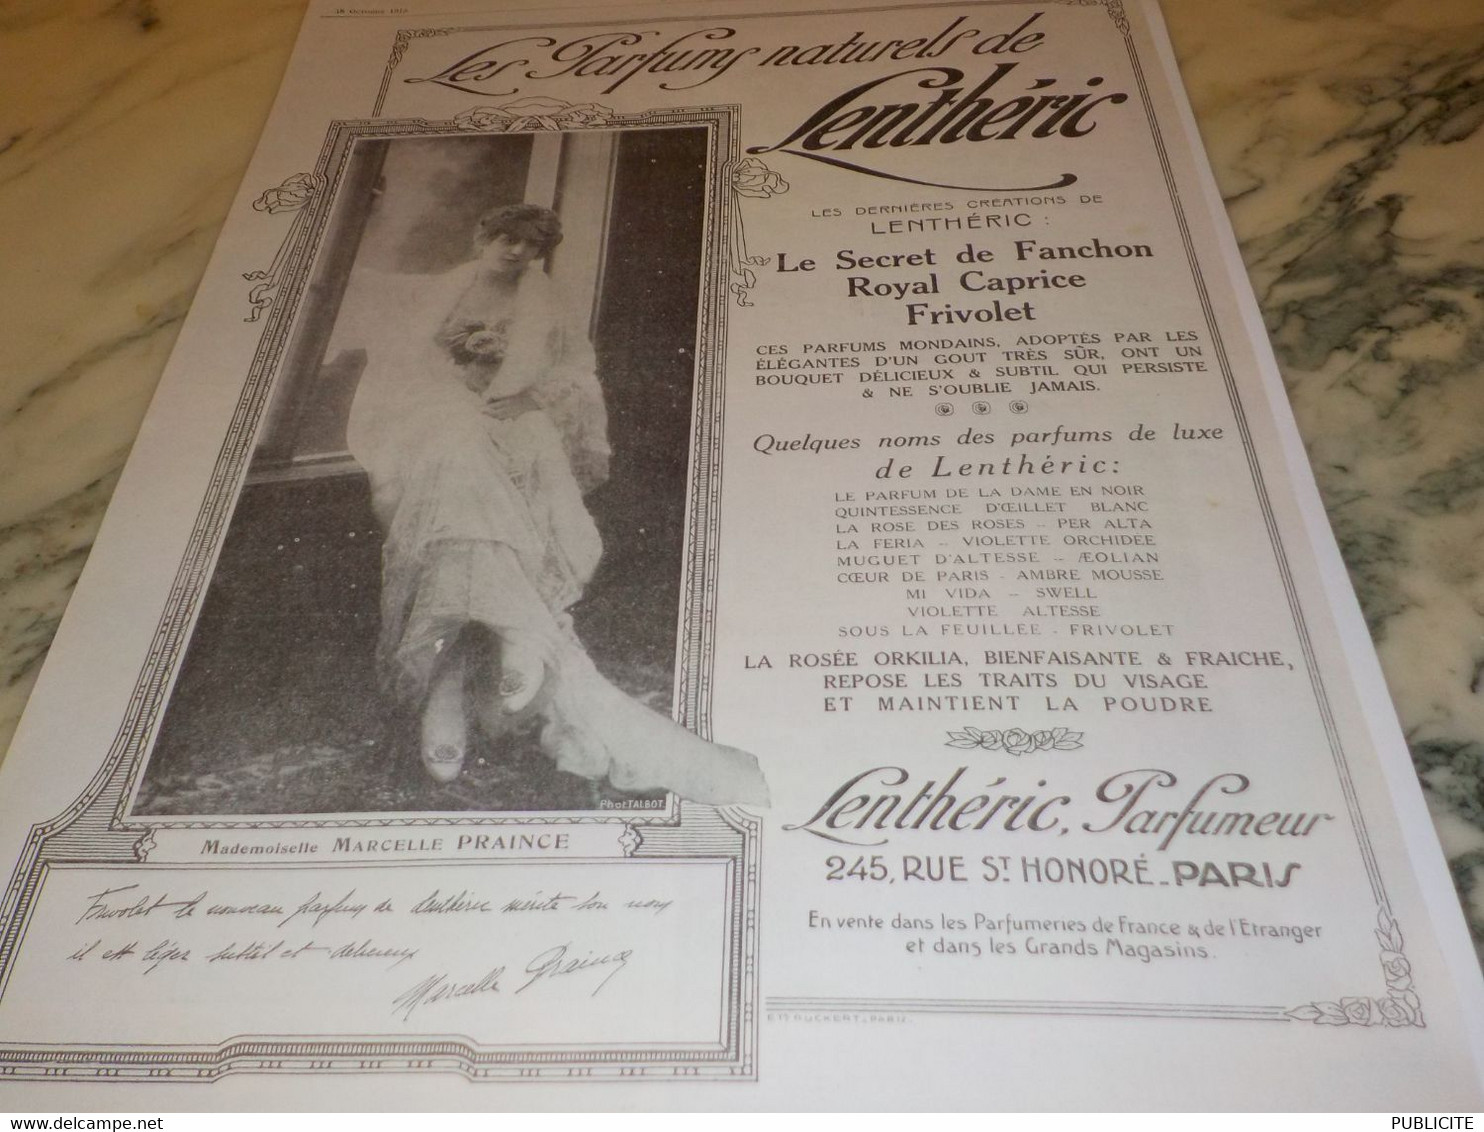 18 Octobre
Les Parfums naturels de
Lenthéric
LES DERNIÈRES CRÉATIONS DE
LENTHÉRIC :
Le Secret de Fanchon
Royal Caprice
Frivolet
CES PARFUMS MONDAINS, ADOPTÉS PAR LES
ÉLÉGANTES D'UN GOUT TRÈS SÛR, ONT UN
BOUQUET DÉLICIEUX & SUBTIL QUI PERSISTE
& NE S'OUBLIE JAMAIS.
Quelques noms des parfums de luxe
de Lenthéric:
LE PARFUM DE LA DAME EN NOIR
QUINTESSENCE D'ŒILLET BLANC
LA ROSE DES ROSES - PER ALTA
LA FERIA - VIOLETTE ORCHIDÉE
MUGUET D'ALTESSE - ÆOLIAN
CŒUR DE PARIS - AMBRE MOUSSE
MI VIDA - SWELL
VIOLETTE ALTESSE
SOUS LA FEUILLÉE - FRIVOLET
LA ROSÉE ORKILIA, BIENFAISANTE & FRAICHE,
REPOSE LES TRAITS DU VISAGE
ET MAINTIENT LA POUDRE
Lenthéric, Parfumeur
245, RUE ST HONORÉ_PARIS
En vente dans les Parfumeries de France & de l'Etranger
et dans les Grands Magasins.
Phot. TALBOT.
Mademoiselle MARCELLE PRAINCE
Frivolet le nouveau parfum de Lenthéric mérite son nom
il est léger subtil et
Marcelle Praince
RUCKERT_PARIS.
PUBLICITE